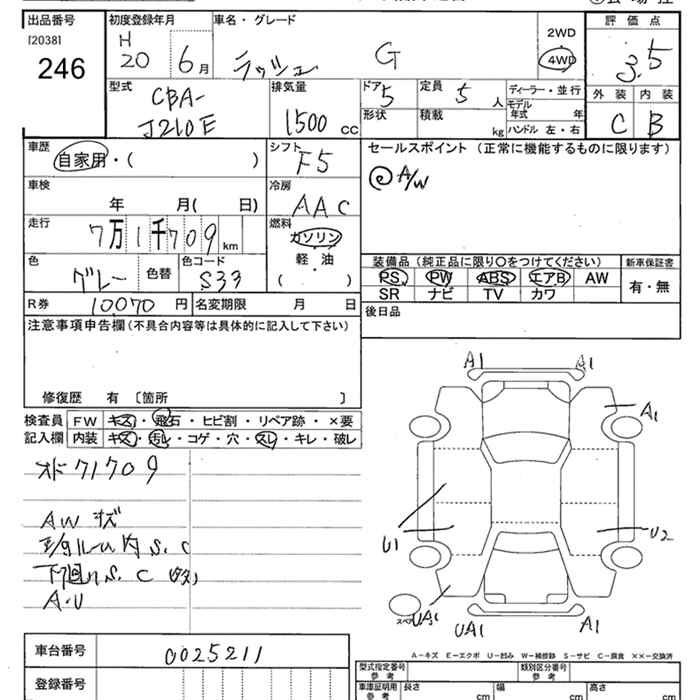 出品番号 [2038]
246
初度登録年月 H 20 6月
車名・グレード ラッシュ G
2WD
4WD
評価点 3.5
外装 C 内装 B
型式 CBA-J210E
排気量 1500 cc
ドア 5 形状
定員 5 人
積載 kg
ディーラー・並行
モデル年式 年
ハンドル 左・右
車歴 自家用・( )
シフト F5
セールスポイント (正常に機能するものに限ります)
◎ A/W
車検 年 月( 日)
冷房 AAC
走行 7万1千709 km
燃料 ガソリン 軽・油 ( )
色 グレー 色替
色コード S33
装備品 (純正品に限り○をつけてください) 新車保証書
PS PW ABS エアB AW 有・無
SR ナビ TV カワ
R券 10070 円 名変期限 月 日
後日品
注意事項申告欄 (不具合内容等は具体的に記入して下さい)
修復歴 有 [箇所 ]
検査員 FW キズ・飛石・ヒビ割・リペア跡・×要
記入欄 内装 キズ・汚レ・コゲ・穴・スレ・キレ・破レ
オド71709
AW キズ
S.C
下廻り S.C
A・U
A1 A1
A1
U1 U2
UA1 UA1 A1
スペア
A-キズ E-エクボ U-凹み W-補修跡 S-サビ C-腐食 ××-交換済
車台番号 0025211
型式指定番号 参考 類別区分番号 参考
登録番号
車庫証明用 参考 長さ cm 幅 cm 高さ cm